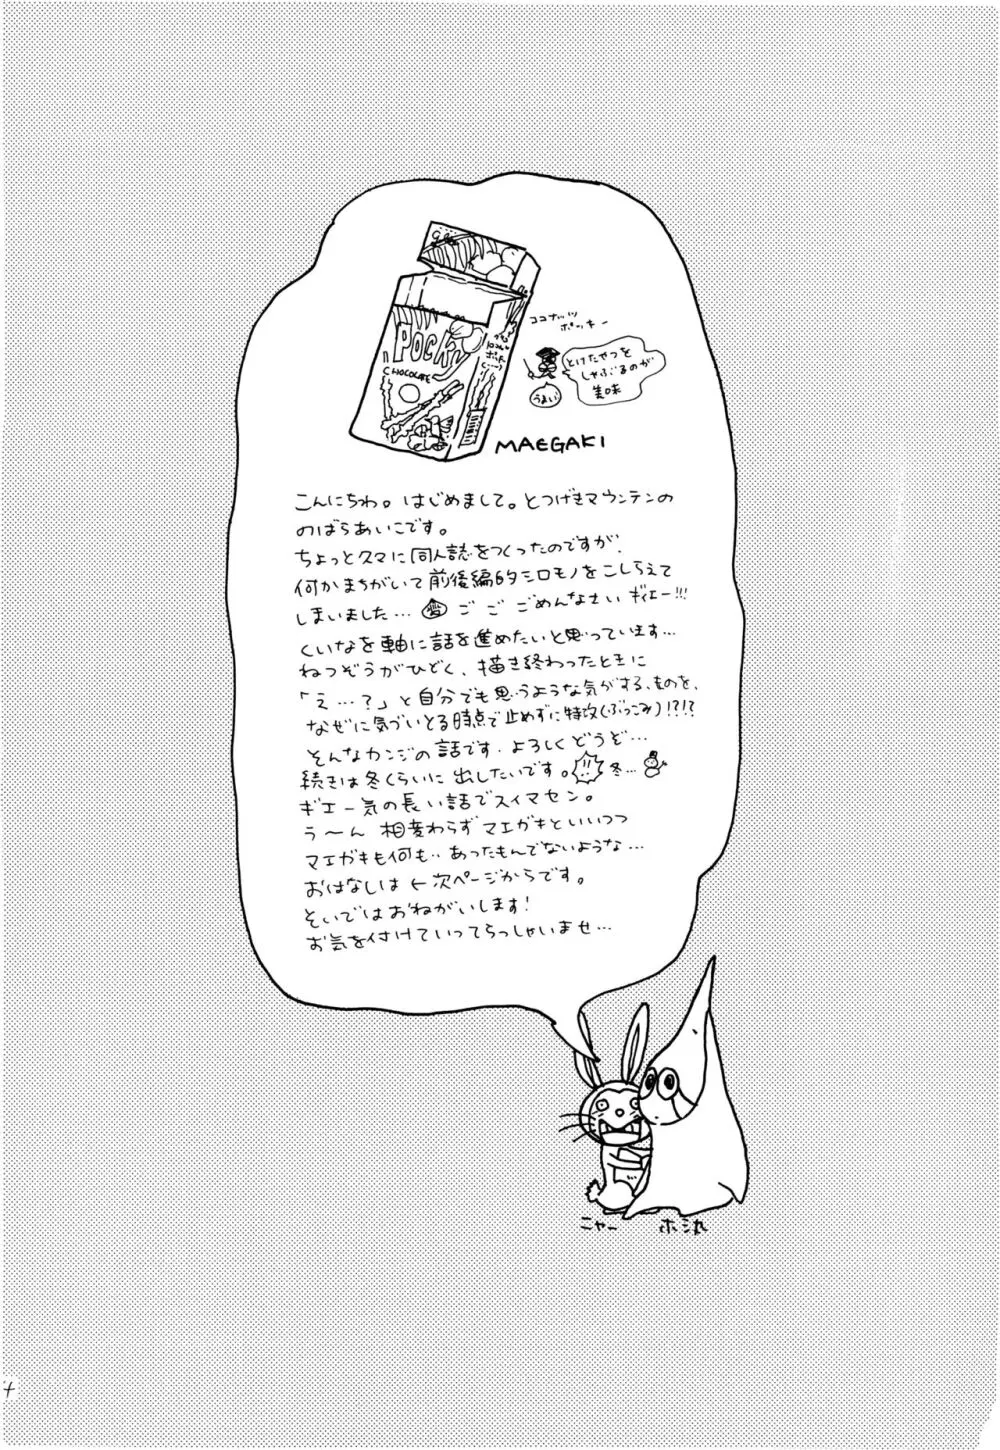 POCKY
CHOCOLATE
ココナッツ
ポッキー
とけたやつを
しゃぶるのが
美味
うまい
MAEGAKI
こんにちわ。はじめまして。とつげきマウンテンの
のばらあいこです。
ちょっと久マに同人誌をつくったのですが、
何かまちがいて前後編的シロモノをこしらえて
しまいました… ご ご ごめんなさい ギィエー!!!
くいなを軸に話を進めたいと思っています…
ねつぞうがひどく、描き終わったときに
「え…?」と自分でも思うような気がする、ものを、
なぜに気づいとる時点で止めずに特攻(ぶっこみ)!?!?
そんなカンジの話です。よろしくどうぞ…
続きは冬くらいに出したいです。冬…
ギエー気の長い話でスイマセン。
う〜ん 相変わらずマエガキといいつつ
マエガキも何も‥あったもんでないような…
おはなしは←次ページからです。
そいではおねがいします!
お気を付けていってらっしゃいませ…
ニャー
ホシ丸
4